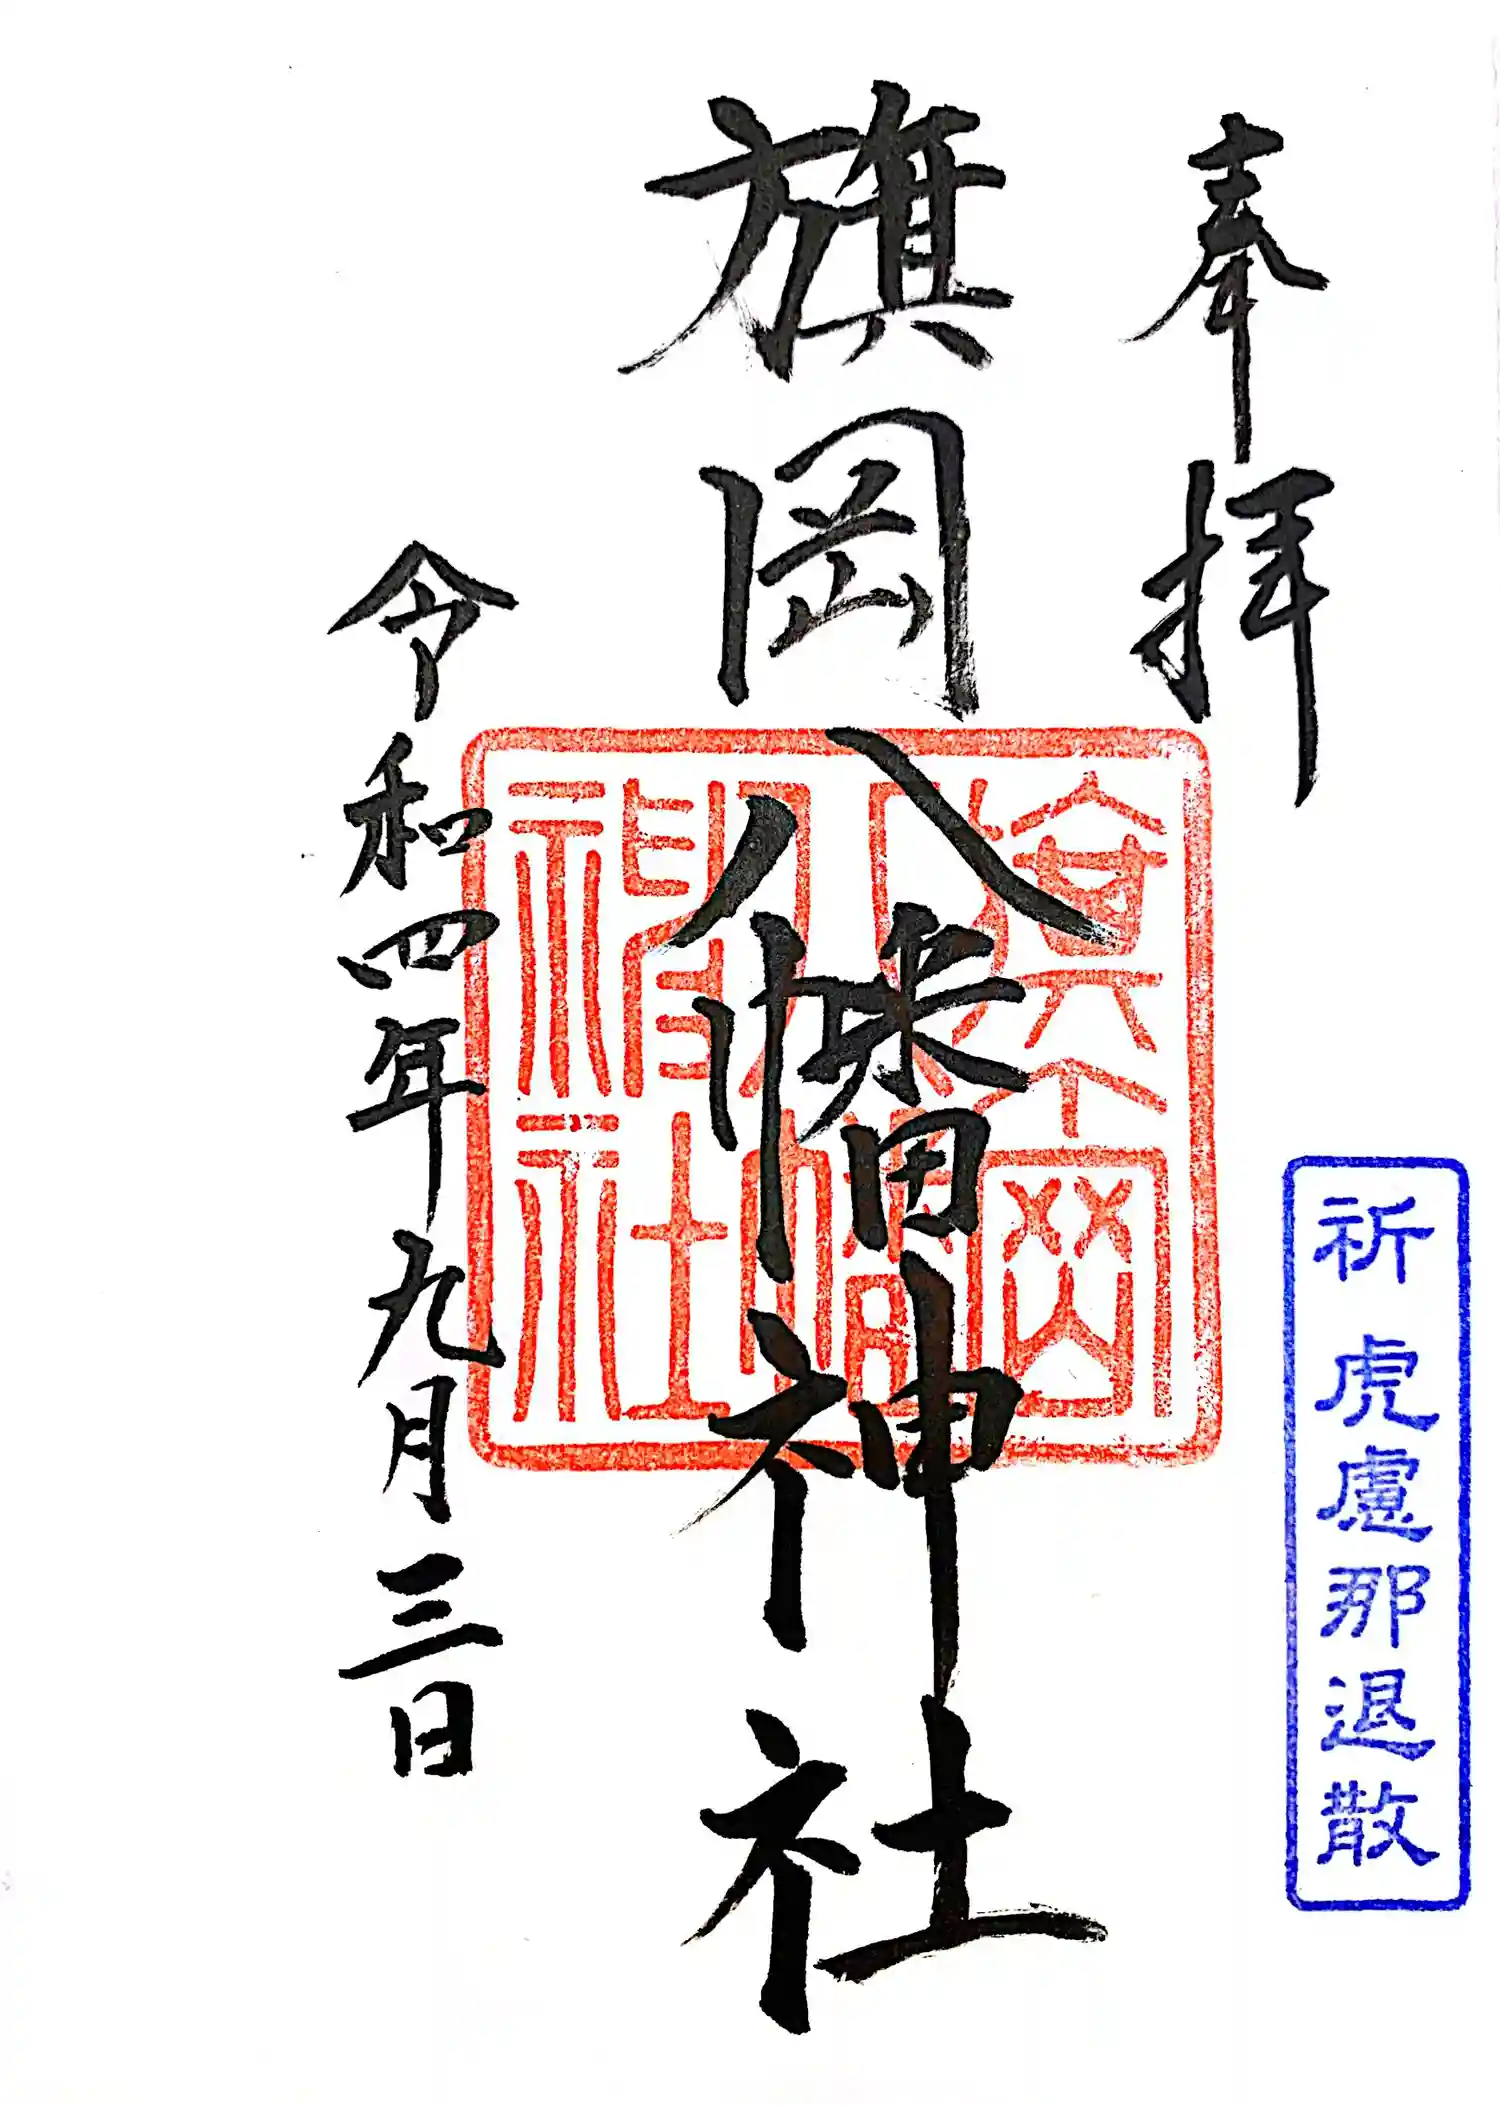 奉拝
祈 虎慮那退散
旗岡八幡神社
旗岡
八幡
神社
令和四年九月三日